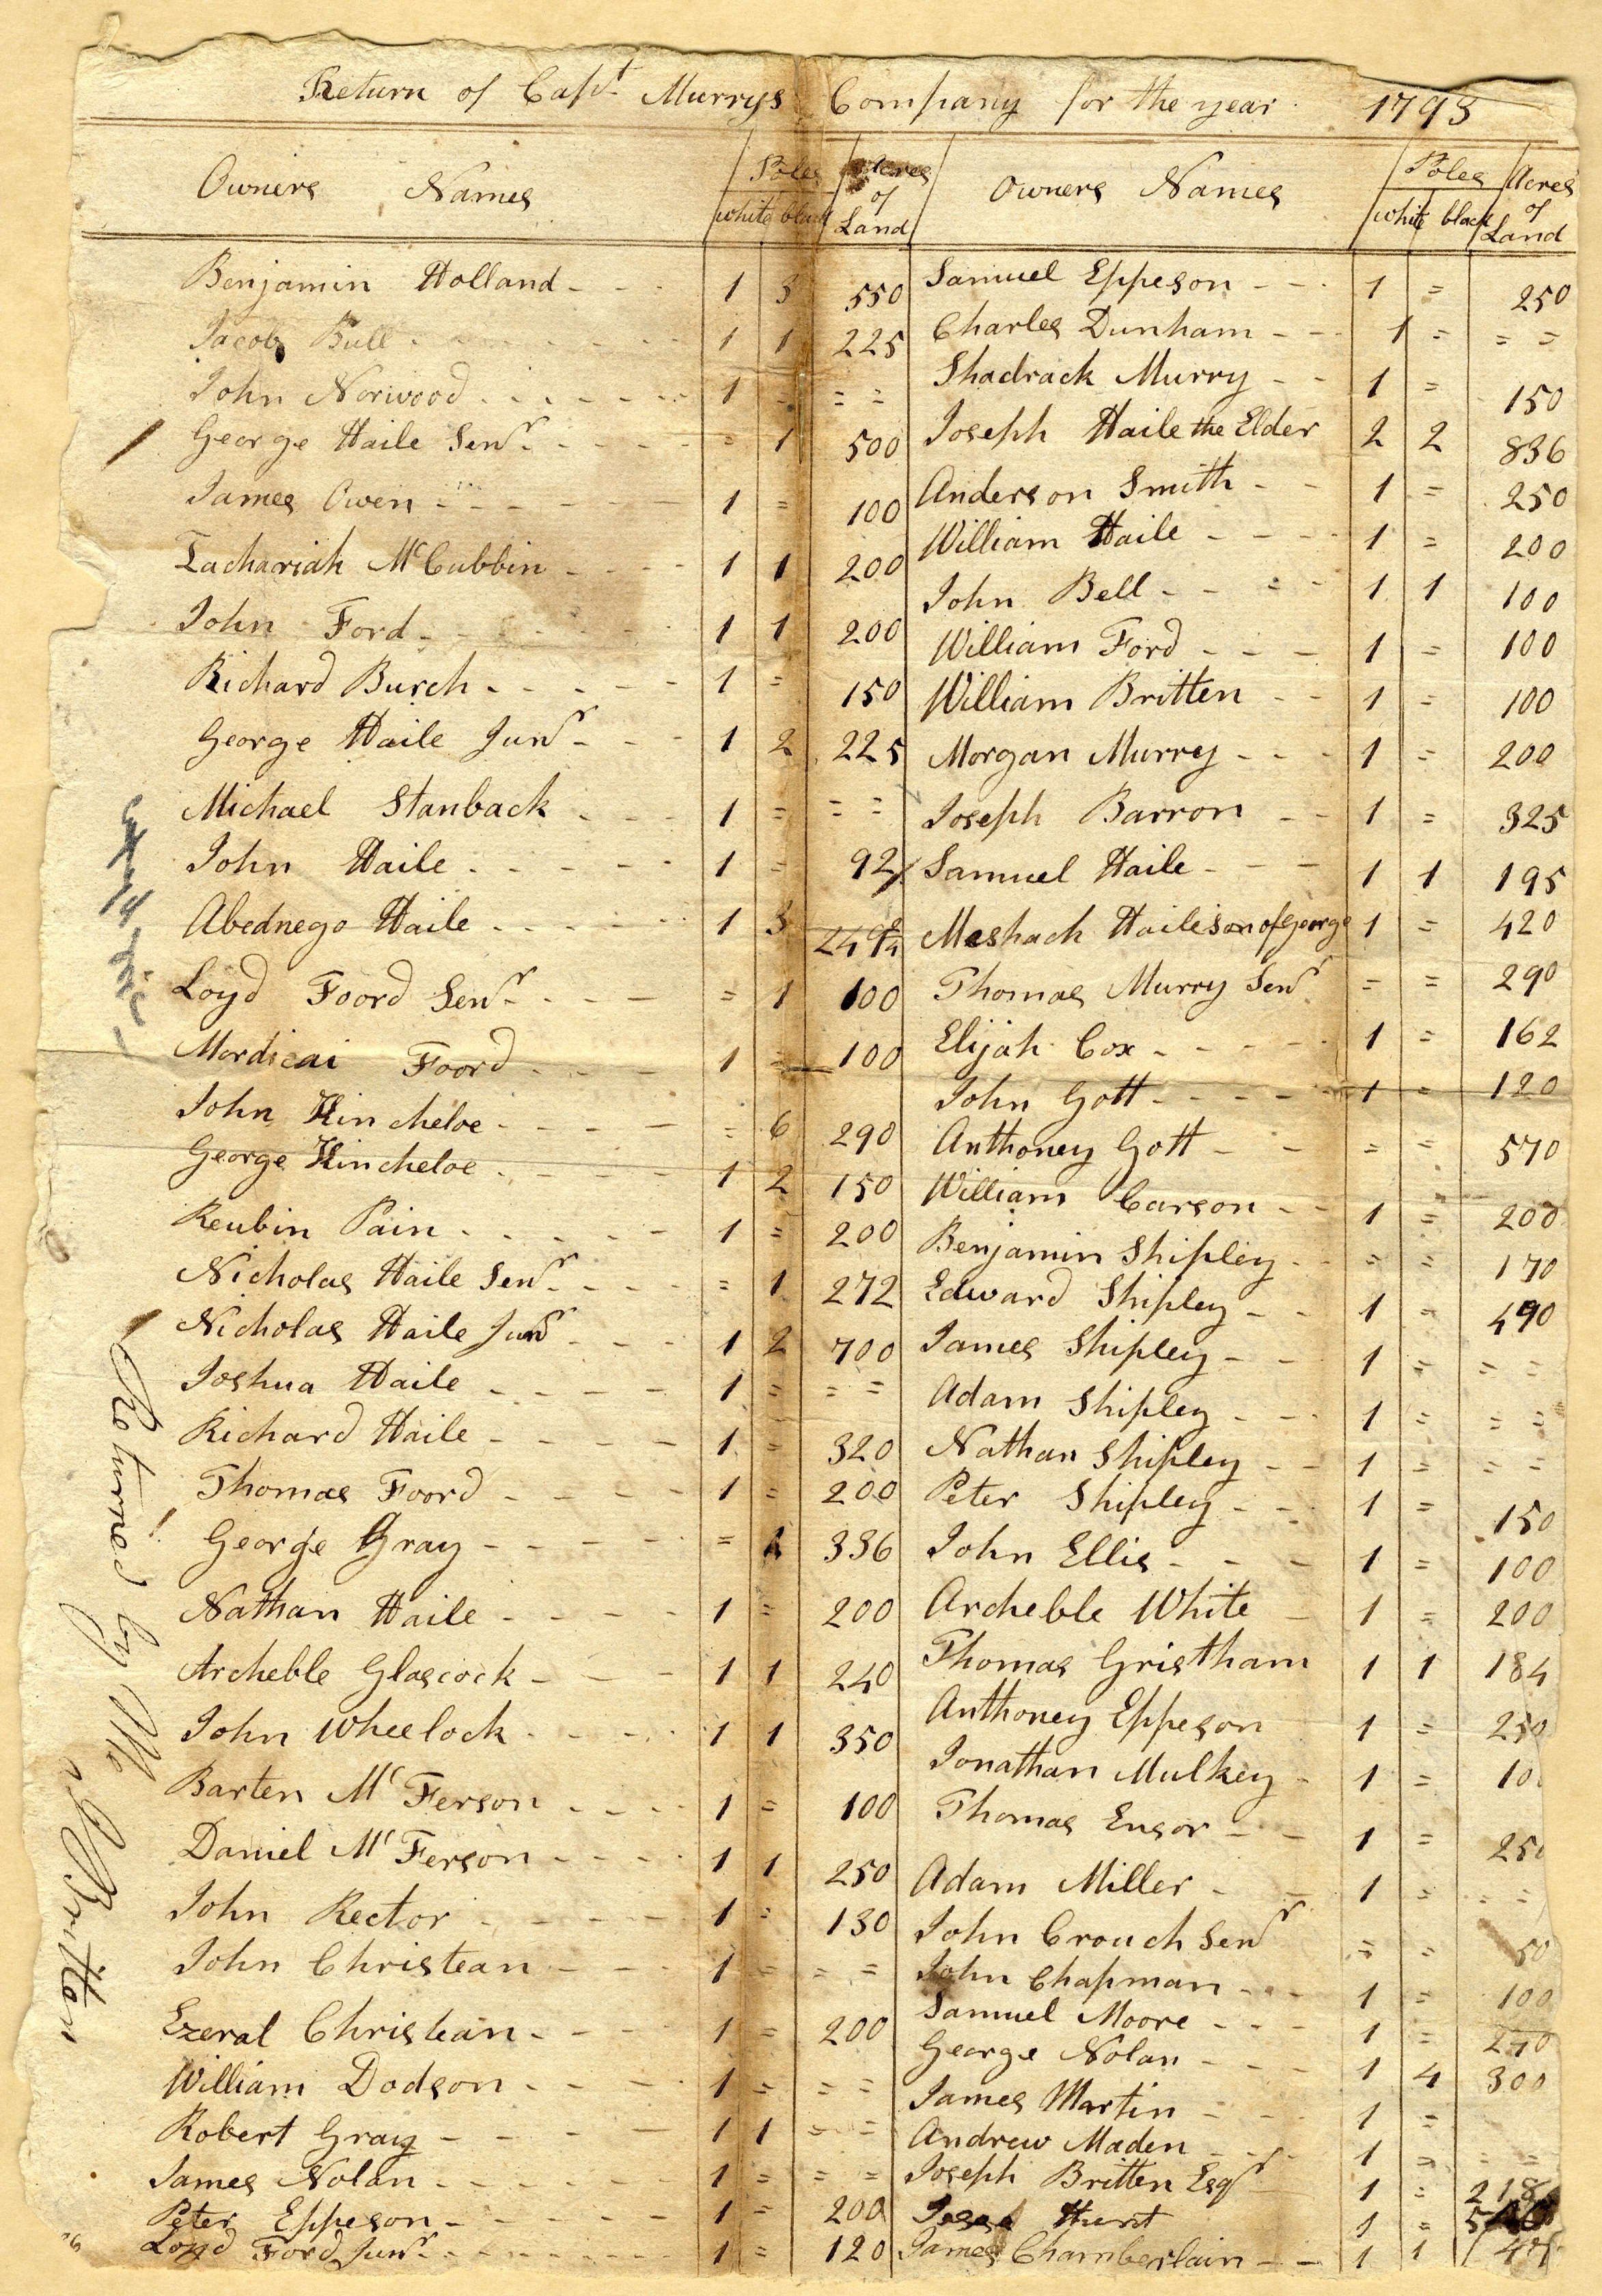 Return of Capt Murrys Company for the year 1793
Owners Names Poles Acres of Land Owners Names Poles Acres of Land
white black white black
Benjamin Holland 1 3 550 Samuel Eppeson 1 = 250
Jacob Bull 1 1 225 Charles Dunham 1 = = =
John Norwood 1 - = = Shadrack Murry 1 = 150
George Haile Senr = 1 500 Joseph Haile the Elder 2 2 836
James Owen 1 = 100 Anderson Smith 1 = 250
Zachariah McCubbin 1 1 200 William Haile 1 = 200
John Ford 1 1 200 John Bell 1 1 100
Richard Burch 1 = 150 William Ford 1 = 100
George Haile Junr 1 2 225 William Britten 1 = 100
Michael Stanback 1 = = = Morgan Murrey 1 = 200
John Haile 1 = 92 Joseph Barron 1 = 325
Abednego Haile 1 3 Samuel Haile 1 1 195
Loyd Foord Senr = 1 100 Meshach Haile son of George 1 = 420
Mordicai Foord 1 = 100 Thomas Murry Senr = = 290
John Kincheloe = 6 290 Elijah Cox 1 = 162
George Kincheloe 1 2 150 John Gott 1 = 120
Reubin Pain 1 = 200 Anthoney Gott = = 570
Nicholas Haile Senr = 1 272 William Carson 1 = 200
Nicholas Haile Junr 1 2 700 Benjamin Shipley = = 170
Joshua Haile 1 = = = Edward Shipley 1 = 490
Richard Haile 1 = 320 James Shipley 1 = = =
Thomas Foord 1 = 200 Adam Shipley 1 = = =
George Gray = 336 Nathan Shipley 1 = = =
Nathan Haile 1 = 200 Peter Shipley 1 = 150
Archeble Glascock 1 1 240 John Ellis 1 = 100
John Wheelock 1 1 350 Archeble White 1 = 200
Barten Mc Ferson 1 = 100 Thomas Gristham 1 1 184
Daniel Mc Ferson 1 1 250 Anthoney Eppeson 1 = 250
John Rector 1 = 130 Jonathan Mulkey 1 =
John Christean 1 = = = Thomas Ensor 1 = 250
Ezeral Christean 1 = 200 Adam Miller 1 = = =
William Dodson 1 = = = John Crouch Senr = = 50
Robert Gray 1 1 = = John Chapman 1 = 100
James Nolan 1 = = = Samuel Moore 1 =
Peter Eppeson 1 = 200 George Nolan 1 4 300
Loyd Ford Junr 1 = 120 James Martin 1 =
Andrew Maden 1 = = =
Joseph Britten Esqr 1 = 218
Jesse Hunt 1 =
James Chamberlain 1 1
Returned by Me
Js Britten